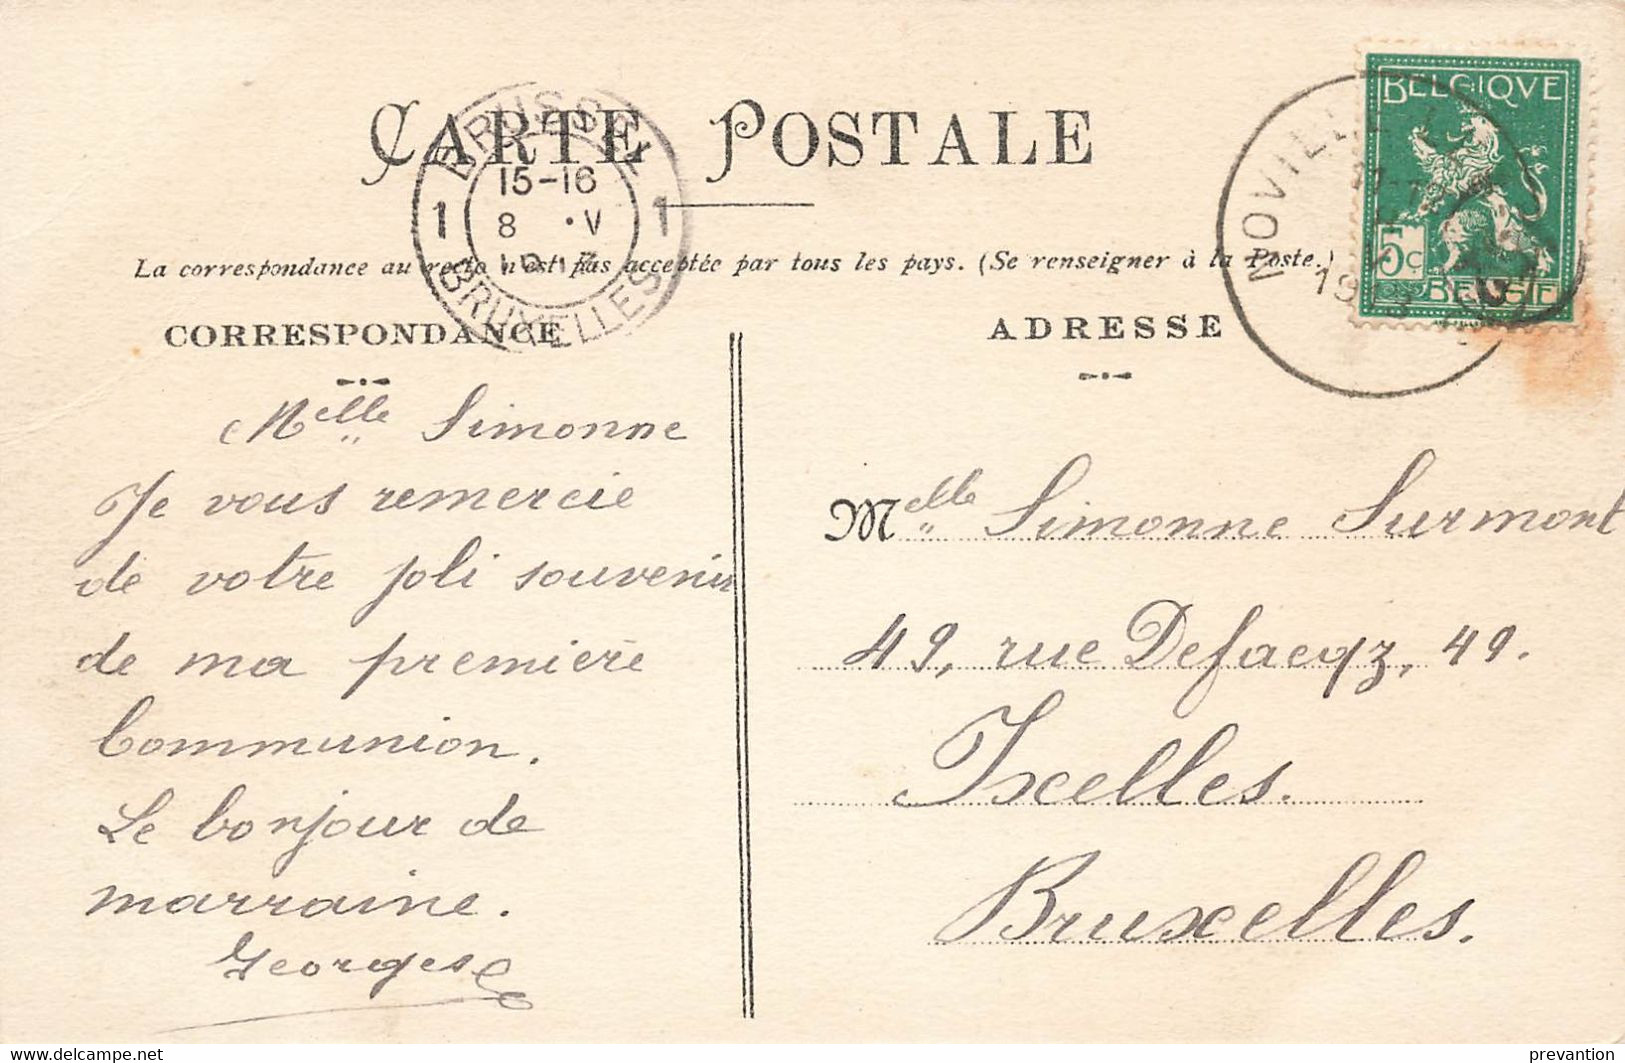 CARTE POSTALE
BRUSSEL
1 15-16 1
8 · V
BRUXELLES
BELGIQVE
5c
BELGIE
NOVILLE
La correspondance au recto n'est pas acceptée par tous les pays. (Se renseigner à la Poste.)
CORRESPONDANCE
Melle Simonne
Je vous remercie
de votre joli souvenir
de ma première
Communion.
Le bonjour de
marraine.
Georges
ADRESSE
Melle Simonne Surmont
49, rue Defacqz, 49.
Ixelles.
Bruxelles.
delcampe.net
prevantion